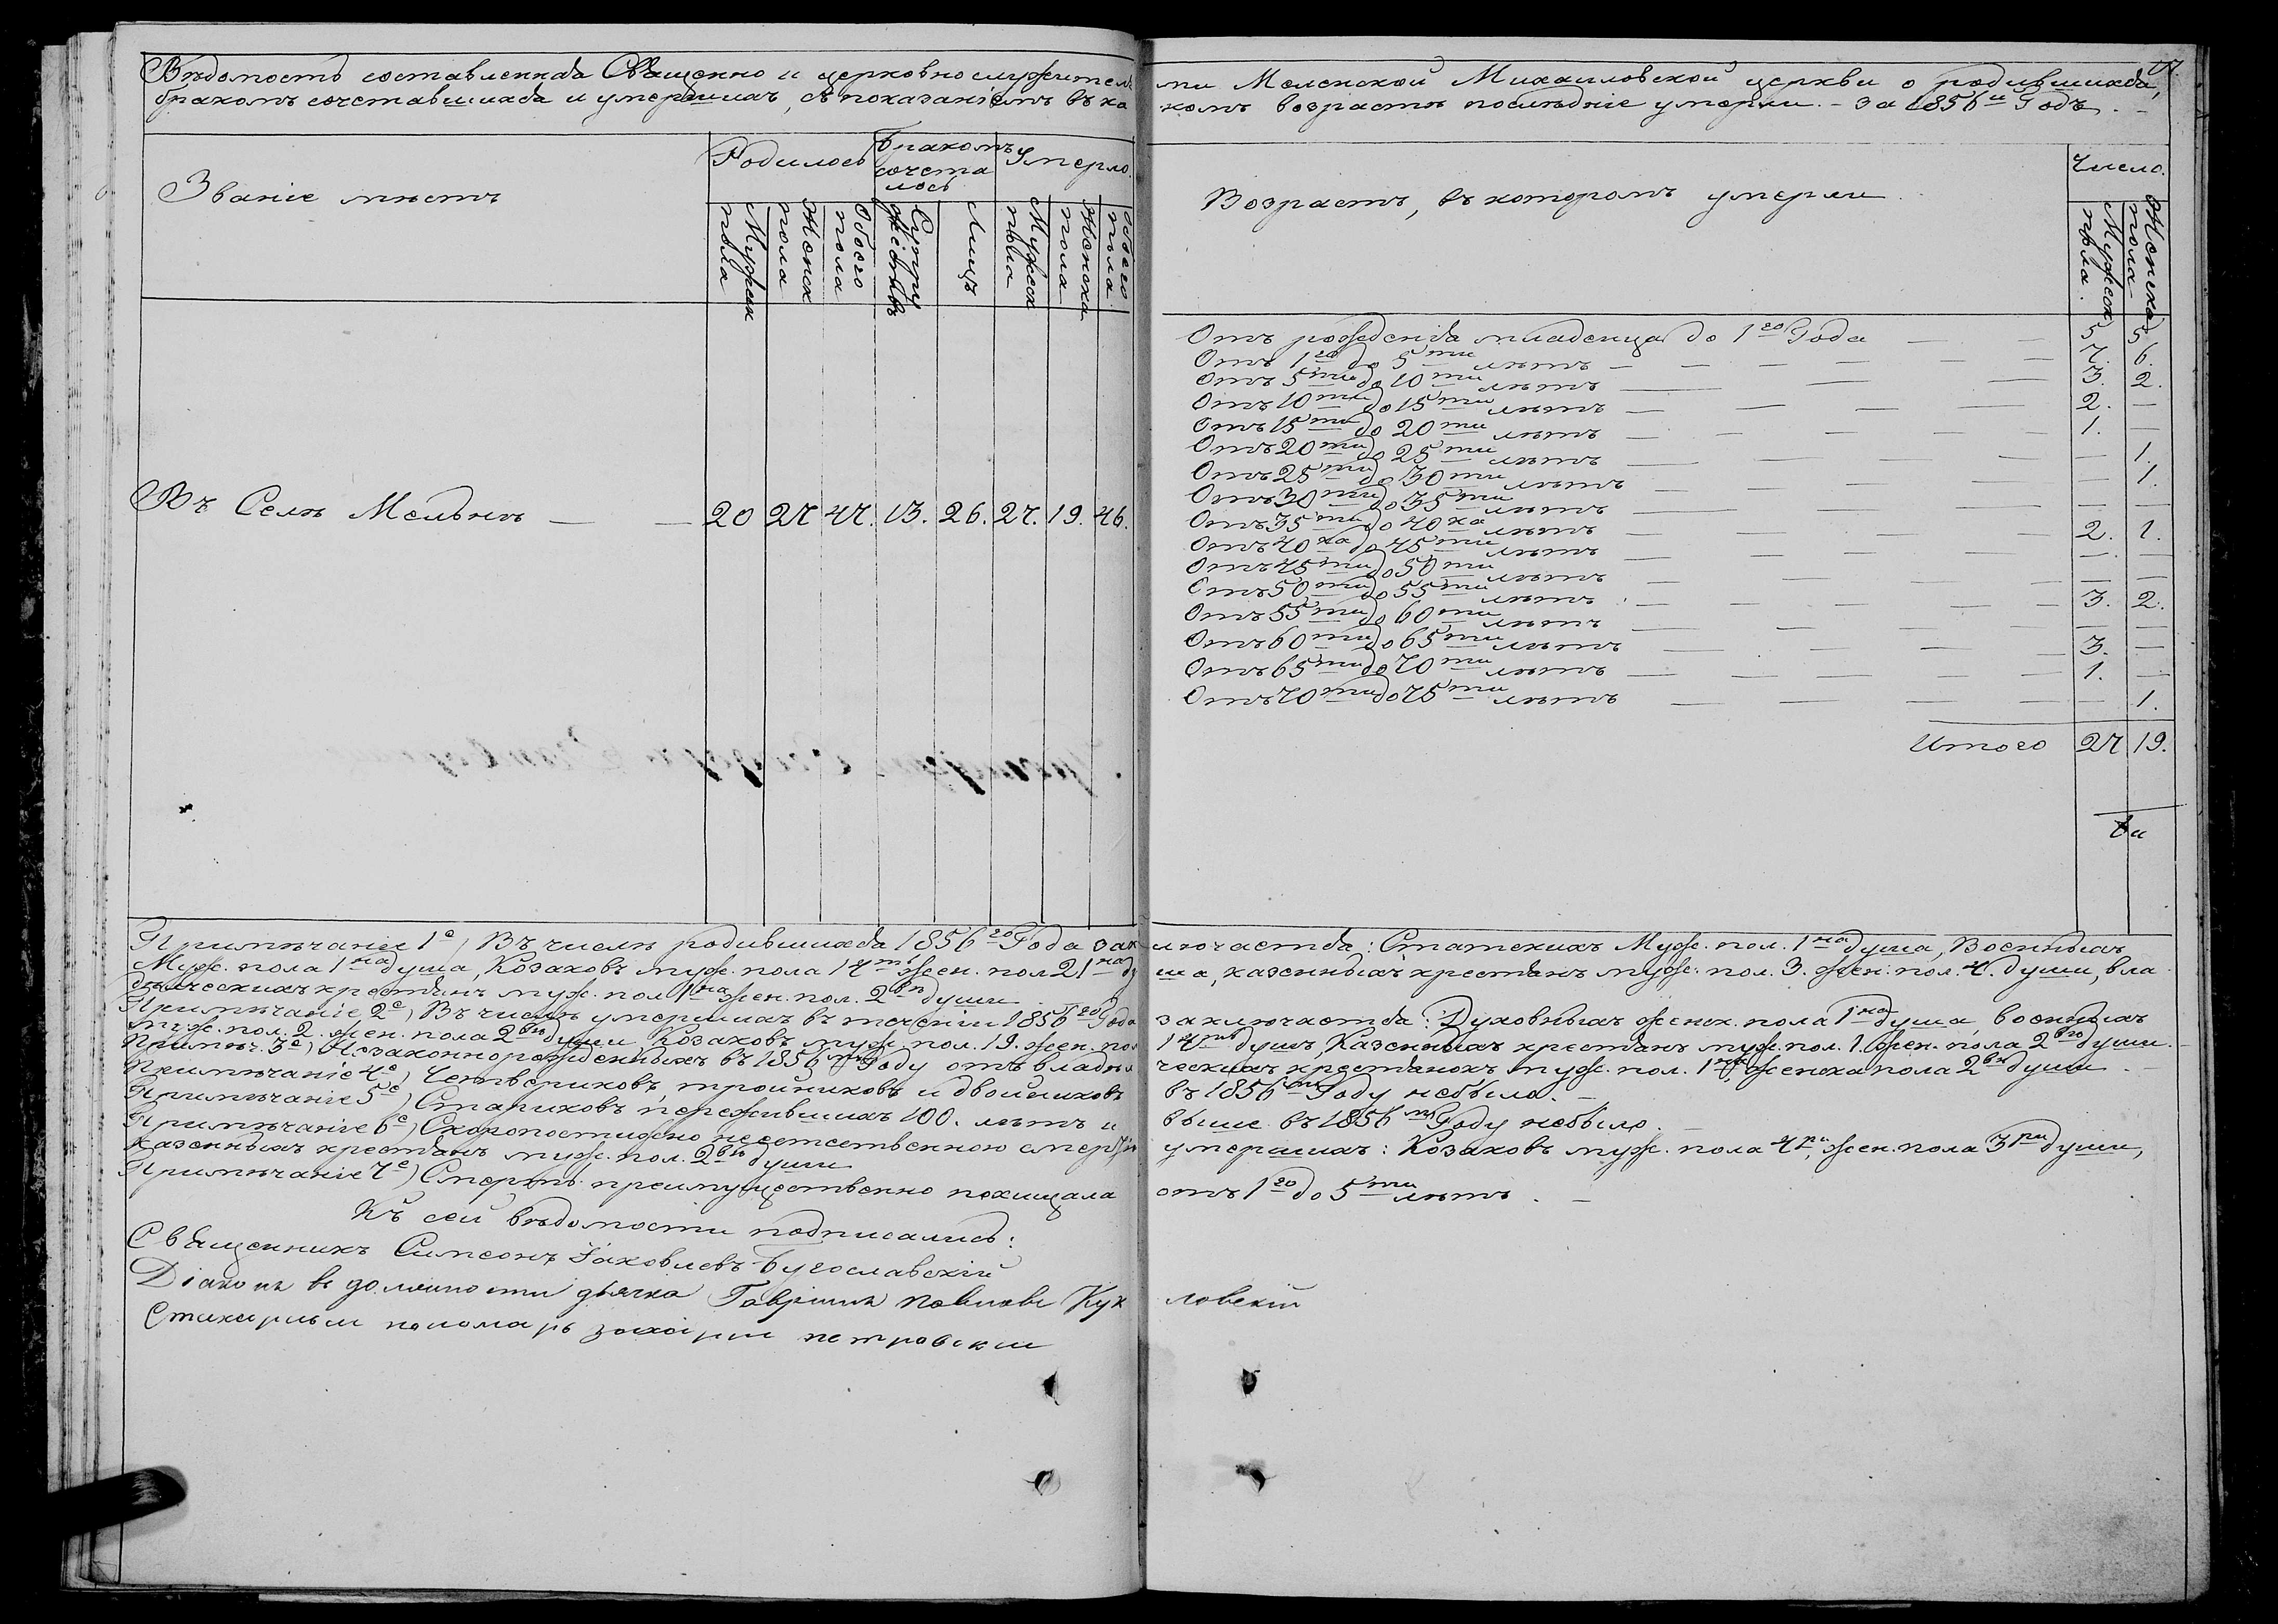 17.
Вѣдомость составленная Священно и церковнослужителями Меленской Михаиловской церкви о родившихся,
бракомъ сочетавшихся и умершихъ, съ показаніемъ въ какомъ возрастѣ послѣдніе умерли. – за 1856й Годъ. –
Званіе мѣстъ
Родилось
Бракомъ сочета лось
Умерло.
Мужеск пола
Женск пола
Обоего пола
Супру жествъ
Лицъ
Мужеск пола
Женска пола
Обоего пола
Возрастъ, въ которомъ умерли
Число.
Мужеск пола.
Женска пола
Въ Селѣ Меленѣ — — 20 27 47. 13. 26. 27. 19. 46.
Отъ рожденія младенца до 1го Года — — 5 5
Отъ 1го до 5ти лѣтъ — — — 7. 6.
Отъ 5ти до 10ти лѣтъ — — — 3. 2.
Отъ 10ти до 15ти лѣтъ — — — 2. —
Отъ 15ти до 20ти лѣтъ — — — 1. —
Отъ 20ти до 25ти лѣтъ — — — — 1.
Отъ 25ти до 30ти лѣтъ — — — — 1.
Отъ 30ти до 35ти лѣтъ — — — — —
Отъ 35ти до 40ка лѣтъ — — — 2. 1.
Отъ 40ка до 45ти лѣтъ — — — — —
Отъ 45ти до 50ти лѣтъ — — — — —
Отъ 50ти до 55ти лѣтъ — — — 3. 2.
Отъ 55ти до 60ти лѣтъ — — — — —
Отъ 60ти до 65ти лѣтъ — — — 3. —
Отъ 65ти до 70ти лѣтъ — — — 1. —
Отъ 70ти до 75ти лѣтъ — — — — 1.
Итого 27 19.
Примѣчаніе 1е) Въ числѣ родившихся 1856го Года заключается: Статскихъ Муж. пол. 1на душа, Военныхъ
Муж. пола 1на душа, Козаковъ муж. пола 14ть жен. пол 21на душа, казенныхъ крестьянъ муж. пол. 3. жен. пол. 4. души, вла
дѣльческихъ крестьянъ муж. пол 1на жен. пол. 2вѣ души
Примѣчаніе 2е) Въ числѣ умершихъ въ теченіи 1856го Года заключается: Духовныхъ женск. пола 1на душа, военныхъ
муж. пол. 2. жен. пола 2вѣ души, Козаковъ муж. пол. 19. жен. пол 14ть душъ, Казенныхъ крестьянъ муж. пол. 1. жен. пола 2вѣ души.
Примѣч. 3е) Незаконнорожденныхъ въ 1856мъ Году отъ владѣльческихъ крестьянокъ муж. пол. 1на, женска пола 2вѣ души. –
Примѣчаніе 4е) Четвериковъ, тройниковъ и двойниковъ въ 1856мъ Году небыло. –
Примѣчаніе 5е) Стариковъ пережившихъ 100. лѣтъ и выше въ 1856мъ Году небыло. –
Примѣчаніе 6е) Скоропостижно неестественною смертію умершихъ: Козаковъ муж. пола 4ри, жен. пола 3ри души,
казенныхъ крестьянъ муж. пол. 2вѣ души
Примѣчаніе 7е) Смерть преимущественно похищала отъ 1го до 5ти лѣтъ. –
Къ сей вѣдомости подписались:
Священникъ Симеонъ Іаковлевъ Бугославскій
Діаконъ въ должности дьячка Гавріилъ Павловъ Кукловскій
Стихарный поломарь Захарій Петровскій